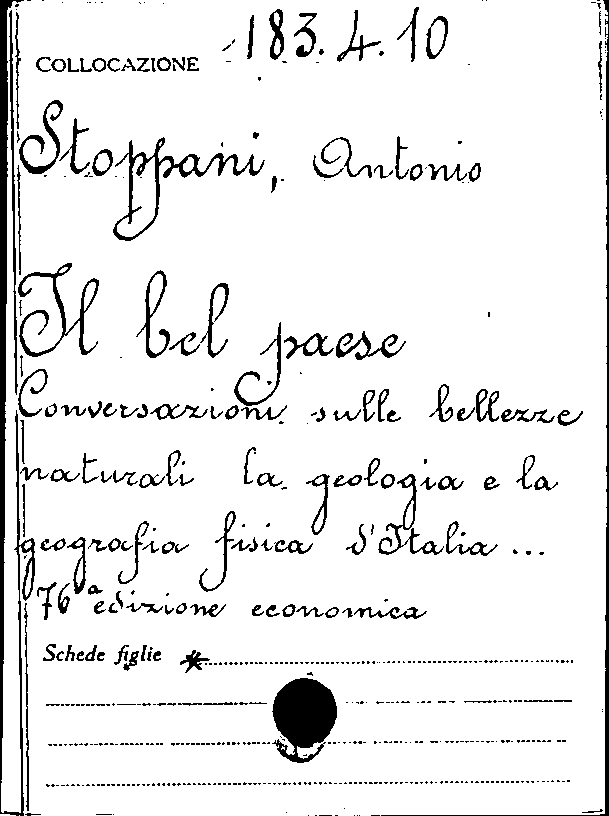 COLLOCAZIONE 183.4.10
Stoppani, Antonio
Il bel paese
Conversazioni sulle bellezze
naturali la geologia e la
geografia fisica d'Italia ...
76ª edizione economica
Schede figlie *